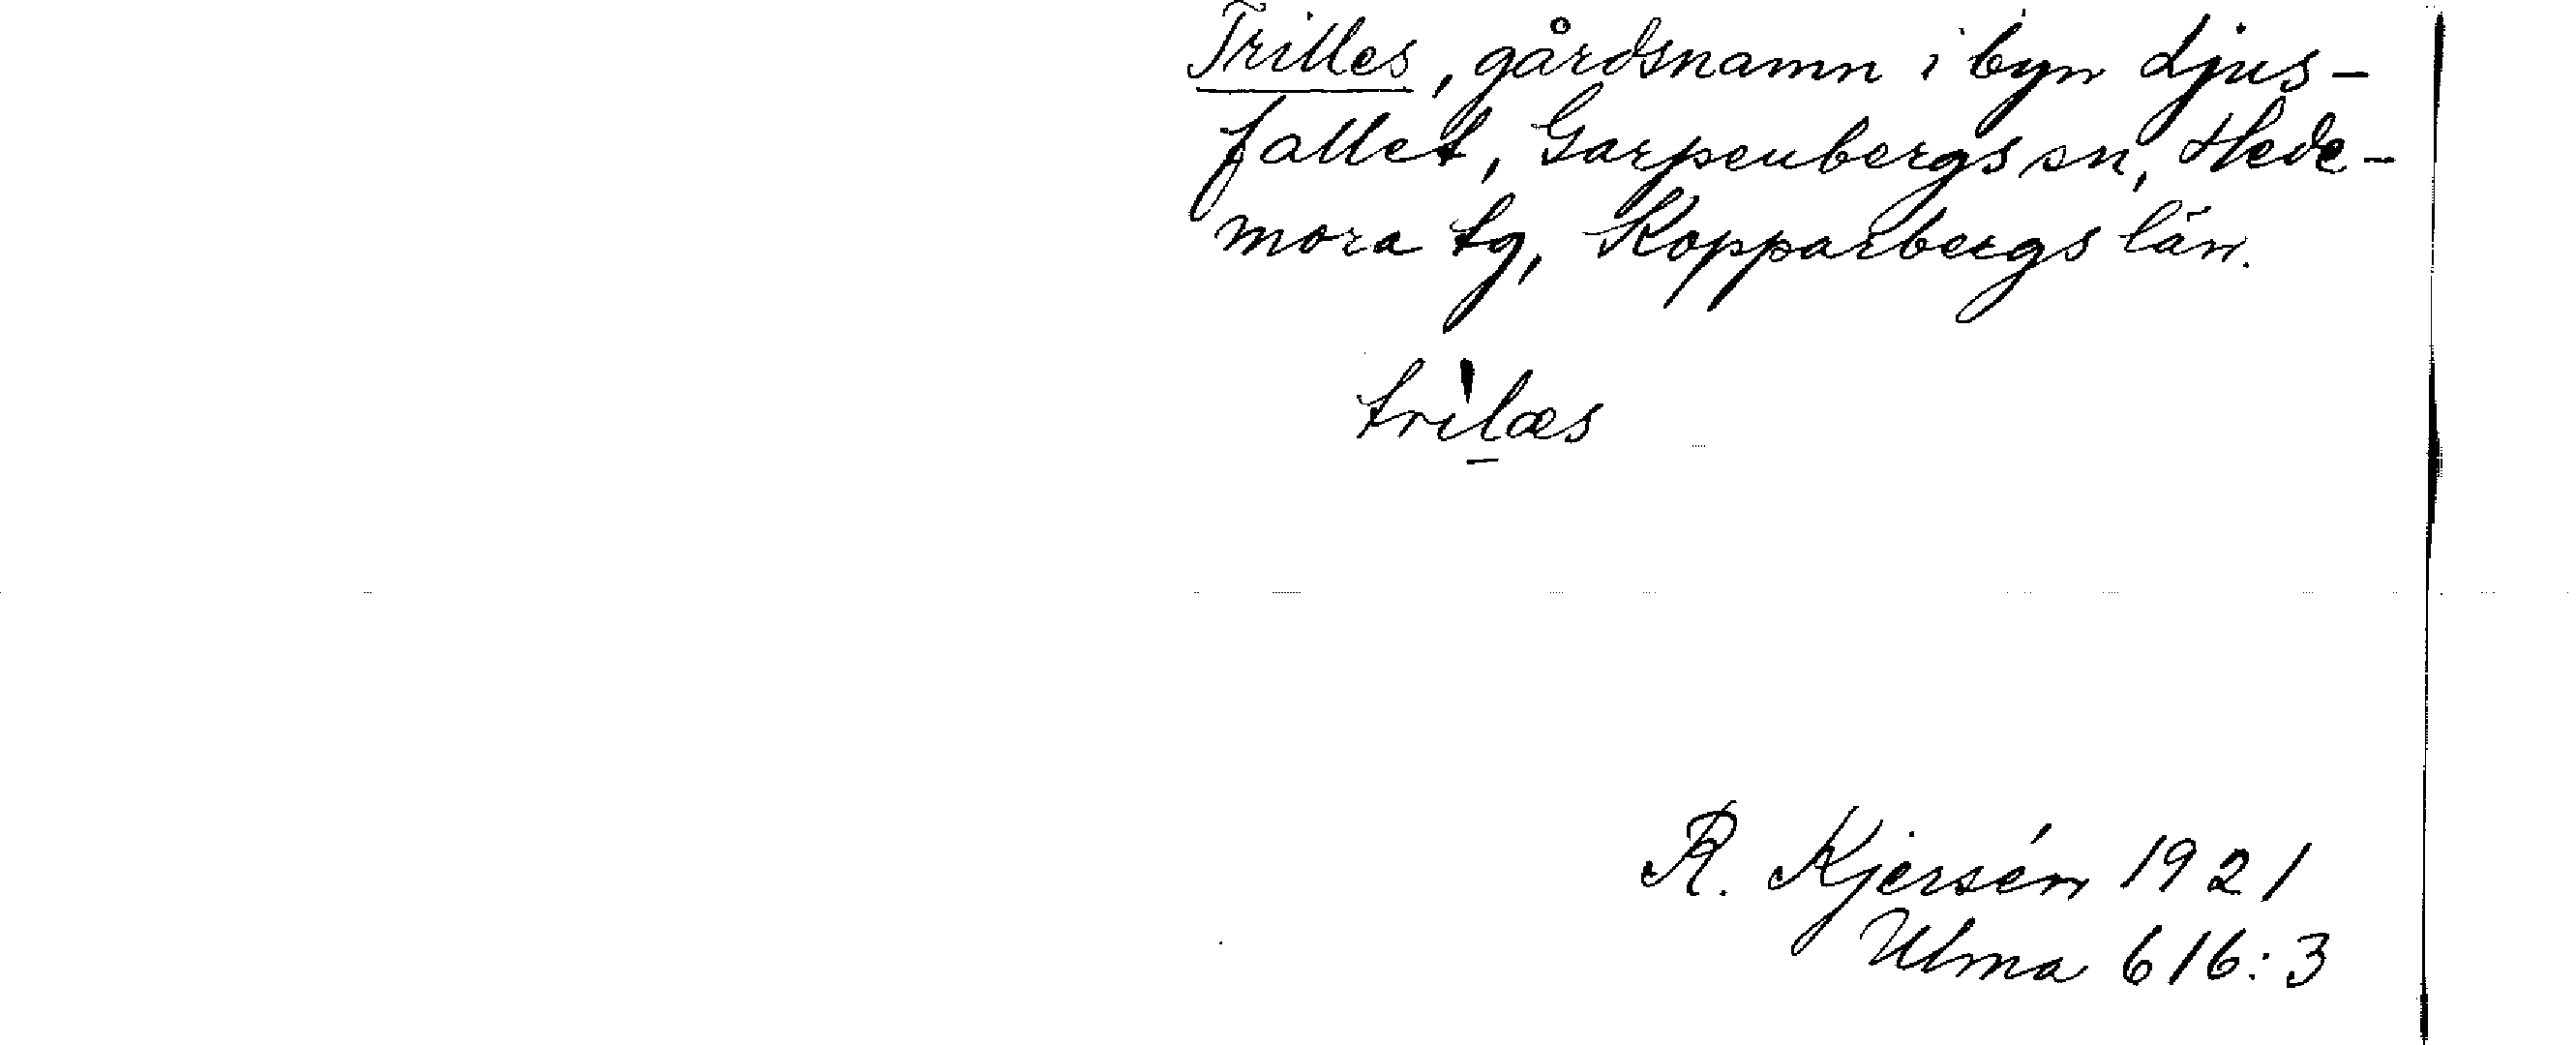 Trilles, gårdsnamn i byn Ljus-
fallet, Garpenbergs sn, Hede-
mora tg, Kopparbergs län.
trìl̲æs
R. Kjersén 1921
Ulma 616:3